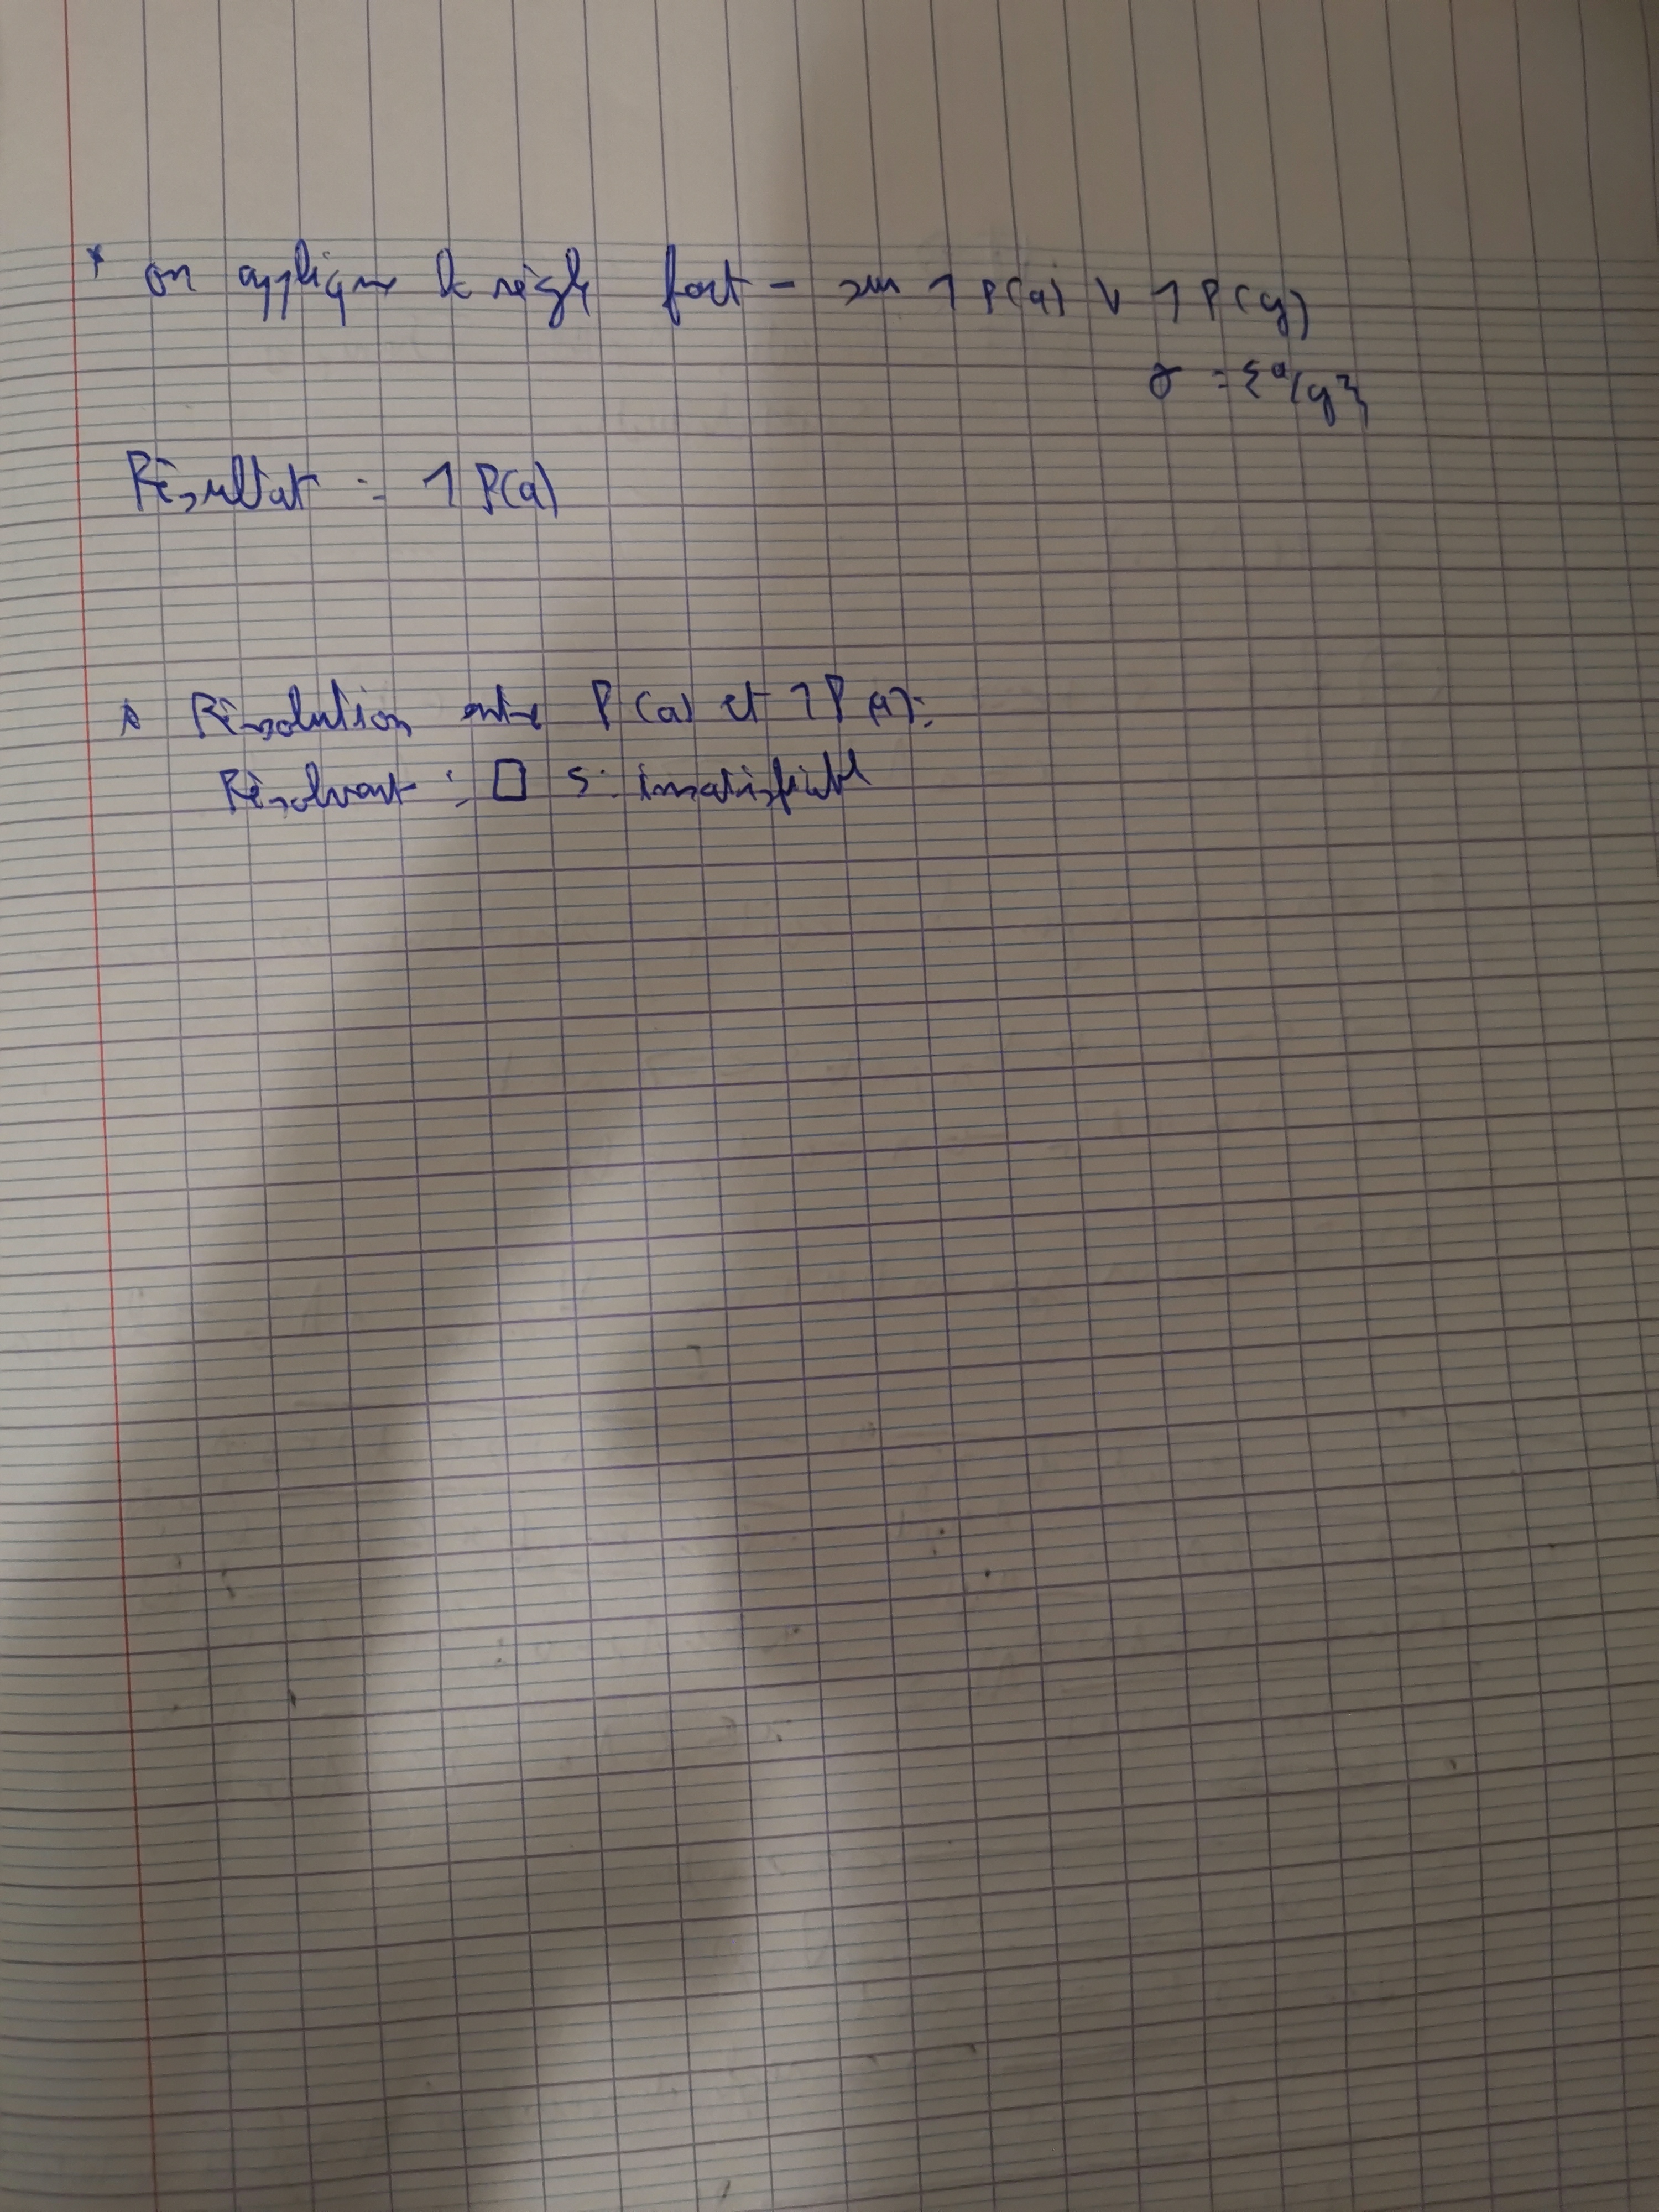 * on applique la règle fact - sur ⌉P(a) ∨ ⌉P(y)
σ = {a/y}
Résultat = ⌉P(a)
* Résolution entre P(a) et ⌉P(a):
Résolvant : □ S: insatisfiable